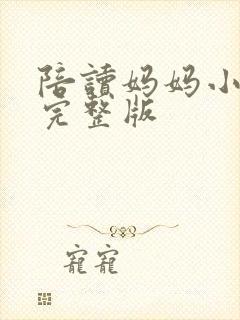 陪讀妈妈小
完整版
寵寵